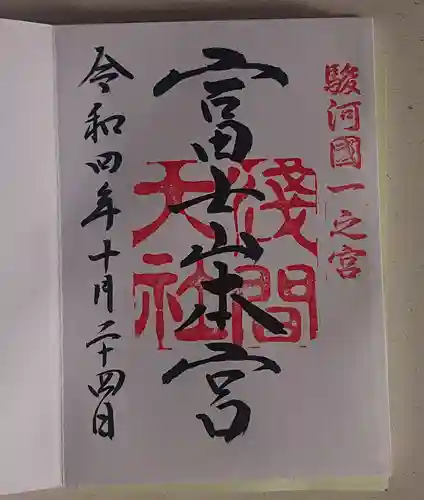 駿河國一之宮
富士山本宮
淺間
大社
令和四年十月二十四日